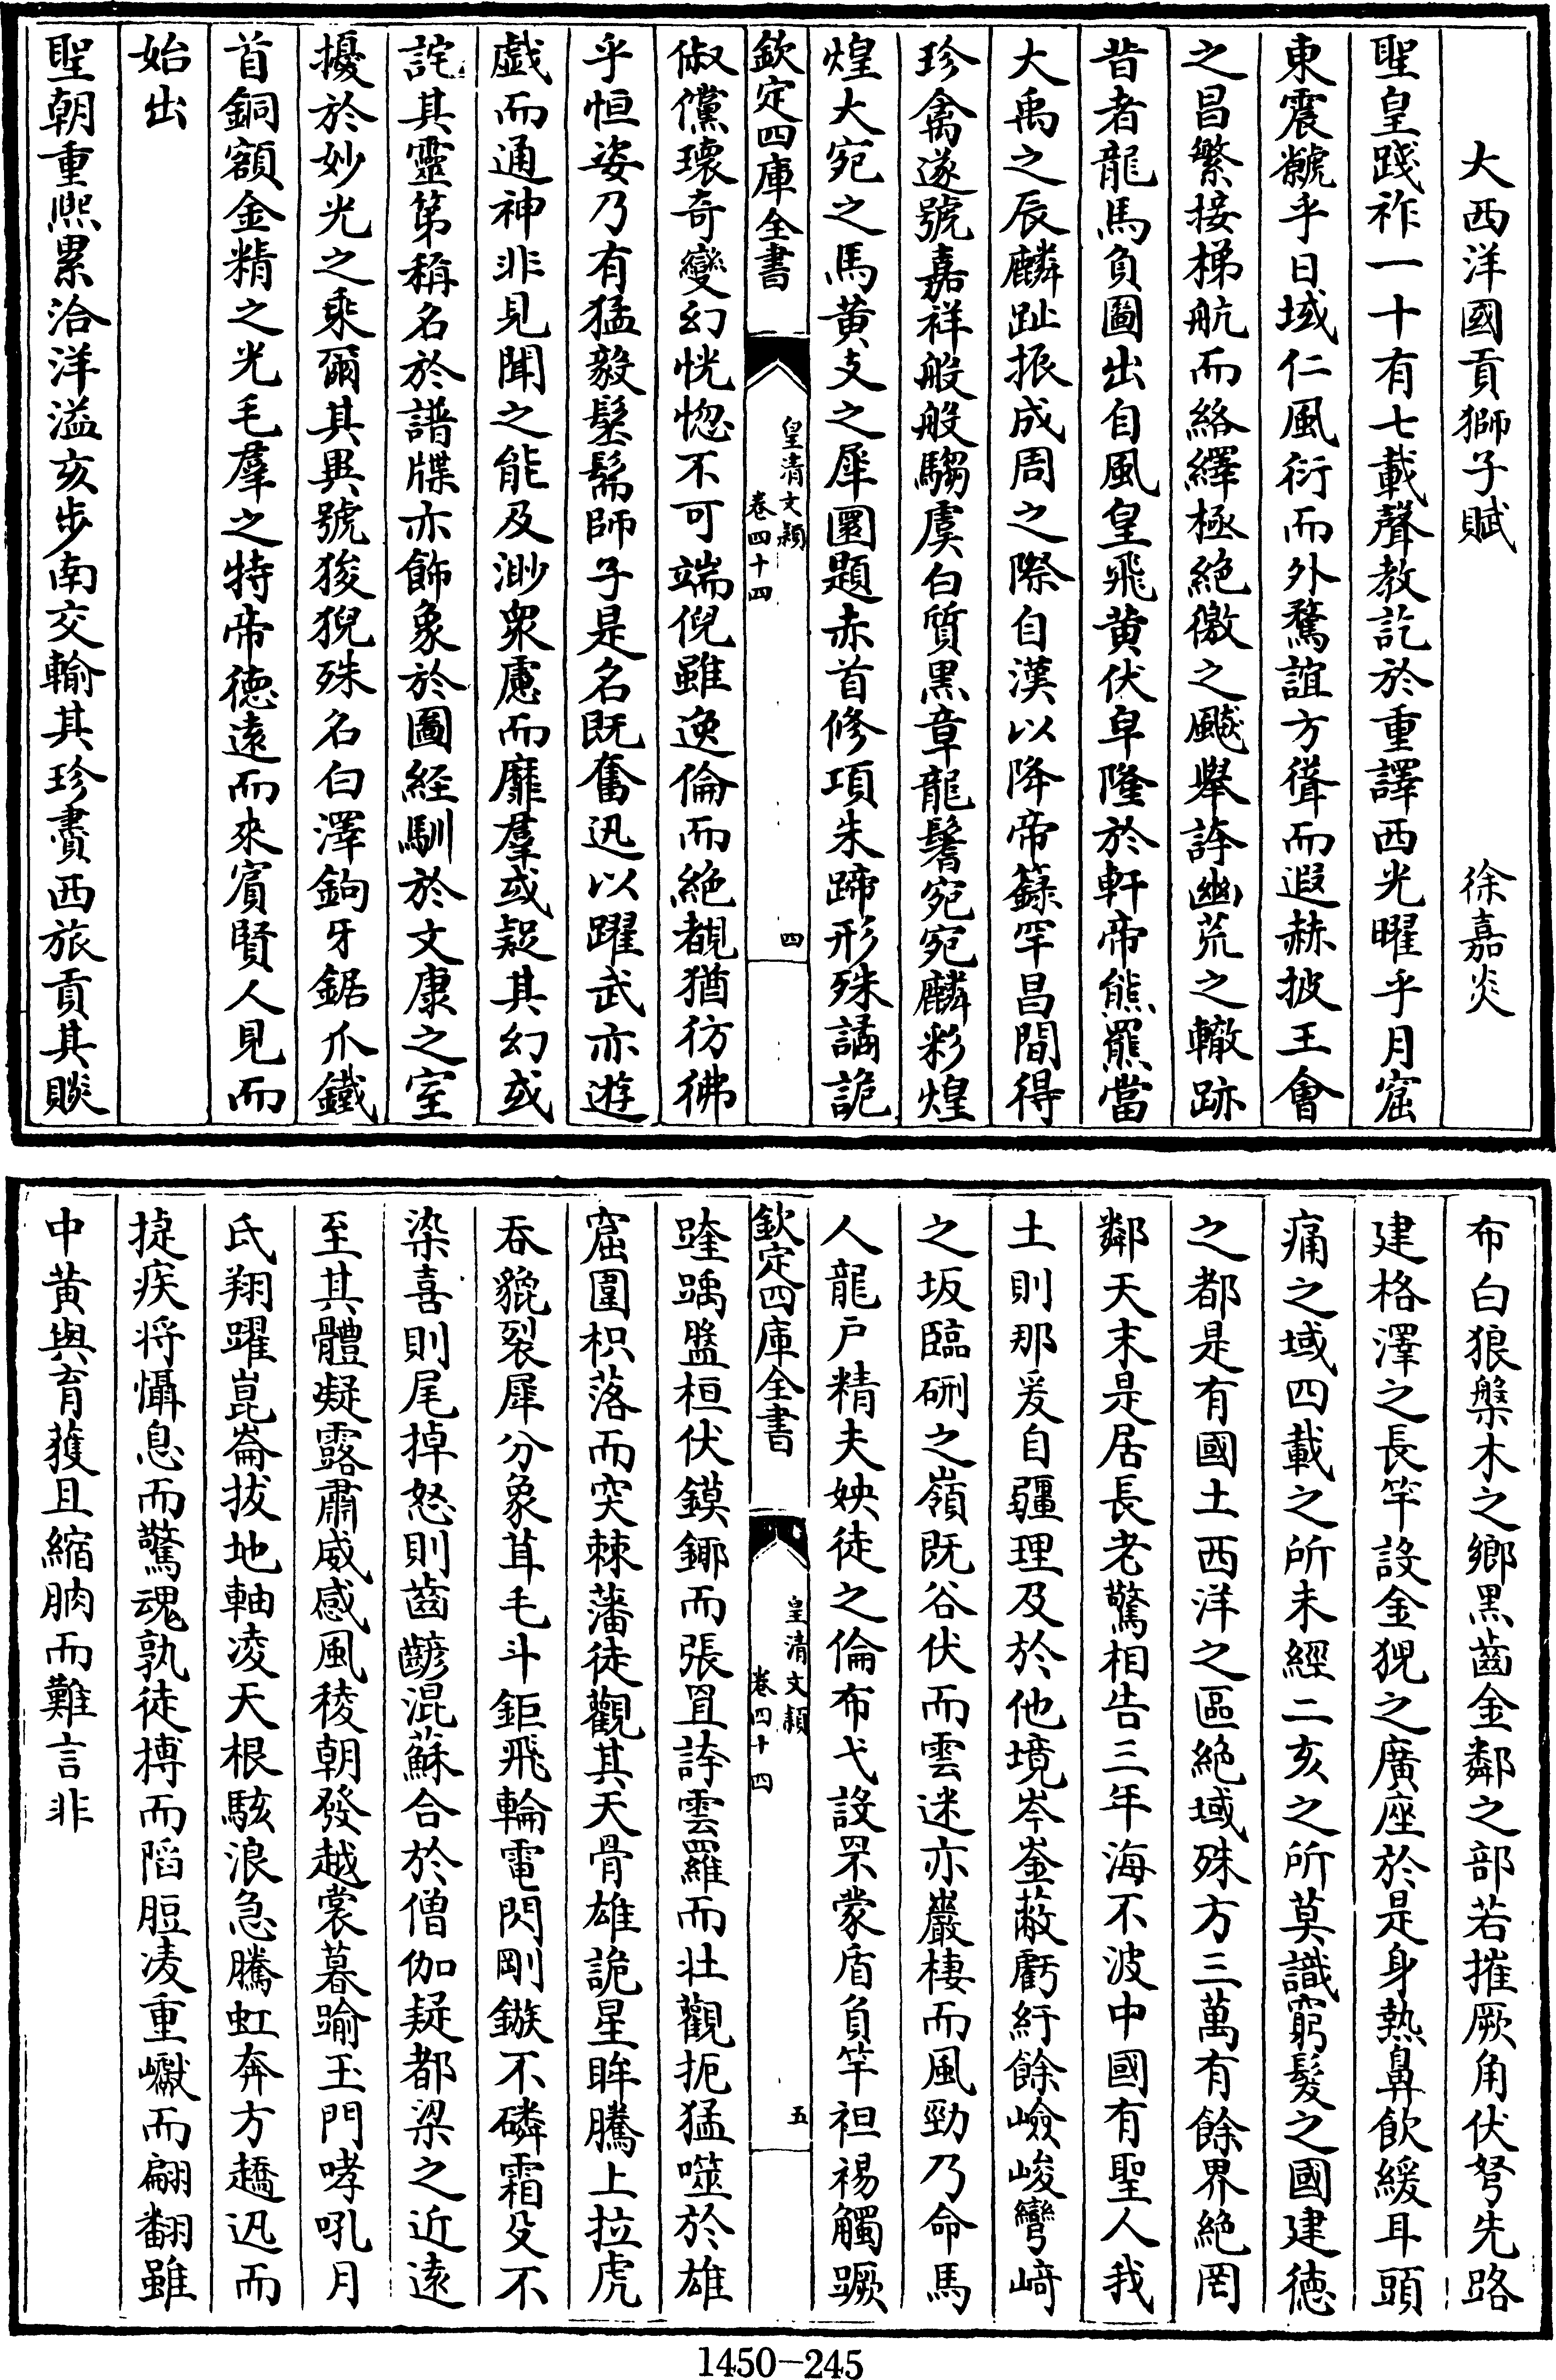 大西洋國貢獅子賦 徐嘉炎
聖皇踐祚一十有七載聲教訖於重譯西光曜乎月窟
東震虩乎日域仁風衍而外騖誼方聳而遐赫披王會
之昌繁接梯航而絡繹極絶徼之飈舉誇幽荒之轍跡
昔者龍馬負圖出自風皇飛黄伏皁隆於軒帝熊羆當
大禹之辰麟趾振成周之際自漢以降帝籙罕昌間得
珍禽遂號嘉祥般般騶虞白質黒章龍鬐宛宛麟彩煌
煌大宛之馬黄支之犀圜題赤首修項朱蹄形殊譎詭
欽定四庫全書 皇清文穎 卷四十四 四
俶儻瓌奇變幻恍惚不可端倪雖逸倫而絶覩猶彷彿
乎恒姿乃有猛毅髬髵師子是名既奮迅以躍武亦遊
戲而通神非見聞之能及渺衆慮而靡羣或疑其幻或
詫其靈第稱名於譜牒亦飾象於圖經馴於文康之室
擾於妙光之乘爾其異號狻猊殊名白澤鉤牙鋸爪鐵
首銅額金精之光毛羣之特帝徳遠而來賓賢人見而
始出
聖朝重熙累洽洋溢亥步南交輸其珍賮西旅貢其賧
布白狼槃木之鄉黒齒金鄰之部若摧厥角伏弩先路
建格澤之長竿設金猊之廣座於是身熱鼻飲緩耳頭
痛之域四載之所未經二亥之所莫識窮髮之國建徳
之都是有國土西洋之區絶域殊方三萬有餘界絶罔
鄰天末是居長老驚相告三年海不波中國有聖人我
土則那爰自疆理及於他境岑崟蔽虧紆餘嶮峻彎﨑
之坂臨硎之嶺既谷伏而雲迷亦巖棲而風勁乃命馬
人龍户精夫姎徒之倫布弋設罘蒙盾負竿袒裼觸蹶
欽定四庫全書 皇清文穎 卷四十四 五
躨踽盬桓伏鏌鋣而張罝誇雲羅而壯觀扼猛噬於雄
窟圍枳落而突棘藩徒觀其天骨雄詭星眸騰上拉虎
吞貔裂犀分象茸毛斗鉅飛輪電閃剛鏃不磷霜殳不
染喜則尾掉怒則齒齴混蘇合於僧伽疑都梁之近遠
至其體凝露肅威感風稜朝發越裳暮踰玉門哮吼月
氏翔躍崑崙拔地軸凌天根駭浪急騰虹奔方趫迅而
㨗疾将懾息而驚魂孰徒搏而䧟脰凌重巘而翩翻雖
中黄與育獲且縮朒而難言非
1450-245